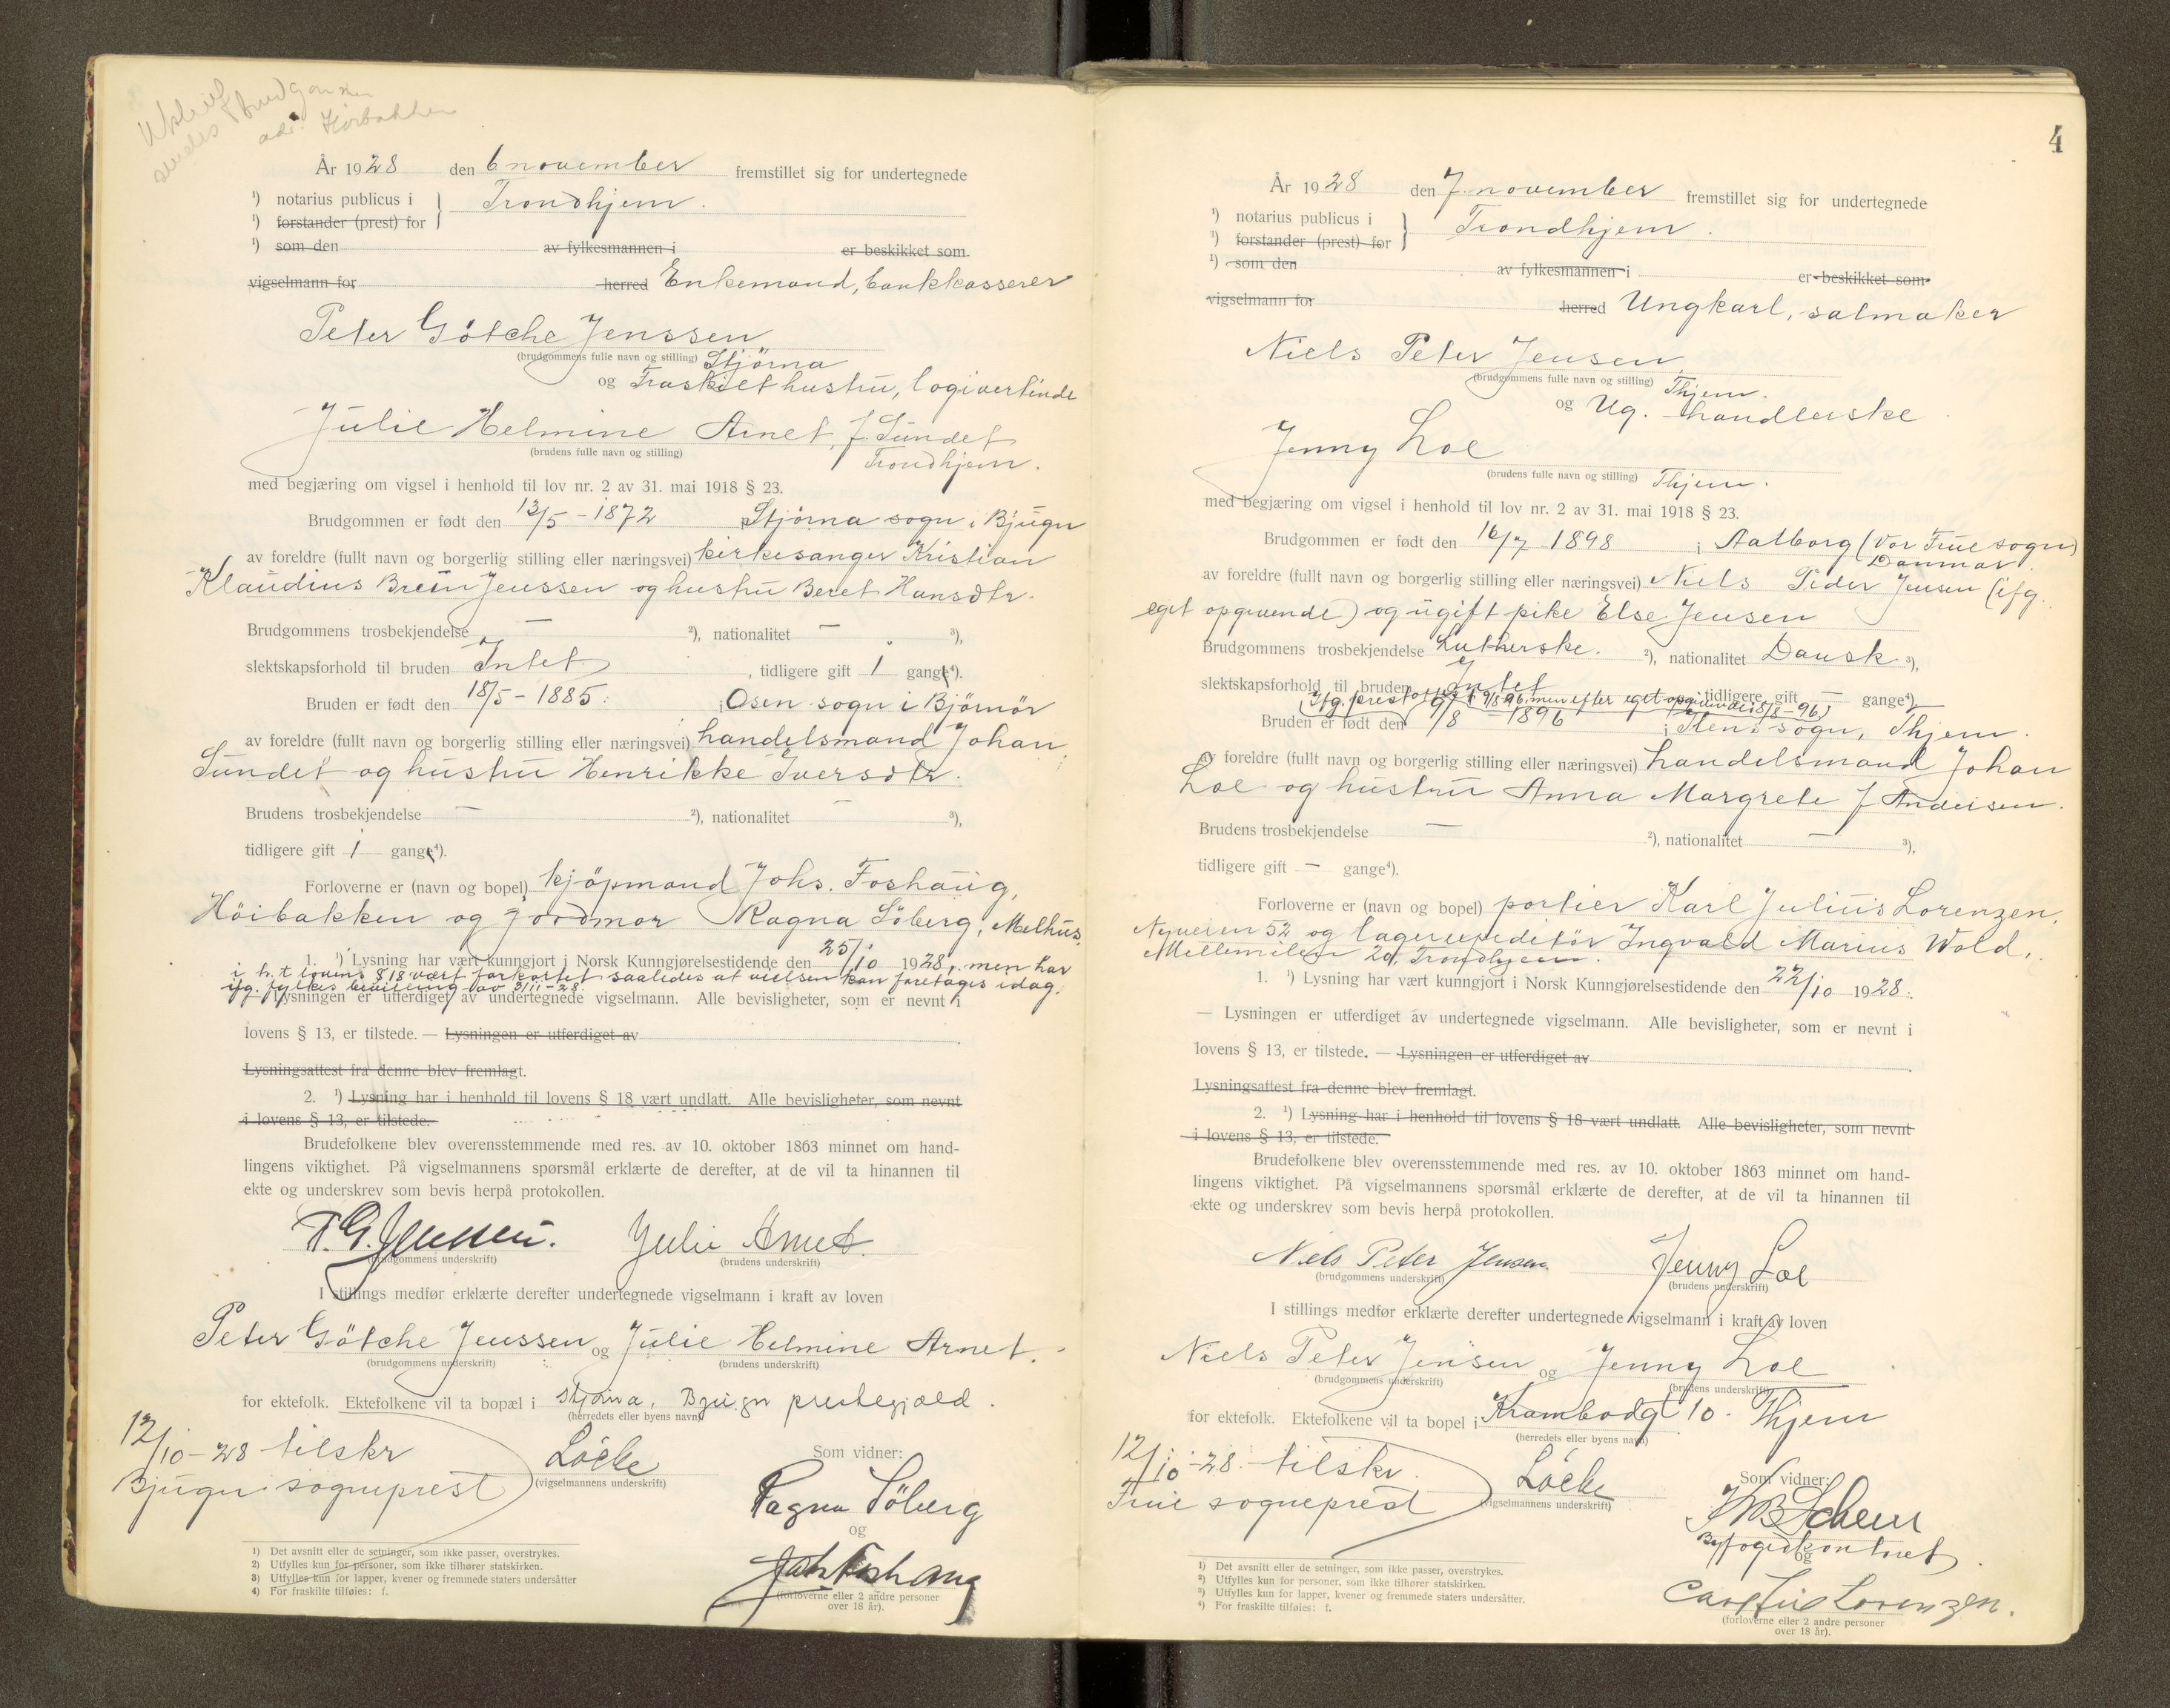 Utskrift
sendes brudgommen
adr. Höibakken
År 1928 den 6 november fremstillet sig for undertegnede
¹) notarius publicus i } Trondhjem.
¹) forstander (prest) for
¹) som den av fylkesmannen i er beskikket som
vigselmann for herred Enkemand, bankkasserer
Peter Götche Jenssen
(brudgommens fulle navn og stilling) Stjörna
og Fraskilt hustru, logivertinde
Julie Helmine Arnet, f Sundet
(brudens fulle navn og stilling) Trondhjem.
med begjæring om vigsel i henhold til lov nr. 2 av 31. mai 1918 § 23.
Brudgommen er født den 13/5 - 1872 i Stjörna sogn i Bjugn
av foreldre (fullt navn og borgerlig stilling eller næringsvei) kirkesanger Kristian
Klaudius Brun Jenssen og hustru Beret Hansdtr.
Brudgommens trosbekjendelse — ²), nationalitet — ³),
slektskapsforhold til bruden Intet, tidligere gift 1 gange⁴).
Bruden er født den 18/5 - 1885. i Osen sogn i Björnör
av foreldre (fullt navn og borgerlig stilling eller næringsvei) handelsmand Johan
Sundet og hustru Henrikke Iversdtr.
Brudens trosbekjendelse — ²), nationalitet — ³),
tidligere gift 1 gange⁴).
Forloverne er (navn og bopel) kjöpmand Johs. Foshaug,
Höibakken og jordmor Ragna Söberg, Melhus.
1. ¹) Lysning har vært kunngjort i Norsk Kunngjørelsestidende den 25/10 1928, men har
i h. t. lovens § 18 vært forkortet saaledes at vielsen kan foretages idag.
ifg. fylkets bevilling av 3/11-28.
Lysningen er utferdiget av undertegnede vigselmann. Alle bevisligheter, som er nevnt i
lovens § 13, er tilstede. — Lysningen er utferdiget av
Lysningsattest fra denne blev fremlagt.
2. ¹) Lysning har i henhold til lovens § 18 vært undlatt. Alle bevisligheter, som nevnt
i lovens § 13, er tilstede.
Brudefolkene blev overensstemmende med res. av 10. oktober 1863 minnet om hand-
lingens viktighet. På vigselmannens spørsmål erklærte de derefter, at de vil ta hinannen til
ekte og underskrev som bevis herpå protokollen.
P. G. Jenssen. Julie Arnet
(brudgommens underskrift) (brudens underskrift)
I stillings medfør erklærte derefter undertegnede vigselmann i kraft av loven
Peter Götche Jenssen og Julie Helmine Arnet.
(brudgommens underskrift) (brudens underskrift)
for ektefolk. Ektefolkene vil ta bopæl i Stjörna, Bjugn prestegjæld.
(herredets eller byens navn)
12/10-28 tilskr
Bjugn sogneprest
Löcke
(vigselmannens underskrift)
Som vidner:
Ragna Söberg
og
Johs Foshaug
(forloverne eller 2 andre personer
over 18 år).
¹) Det avsnitt eller de setninger, som ikke passer, overstrykes.
²) Utfylles kun for personer, som ikke tilhører statskirken.
³) Utfylles kun for lapper, kvener og fremmede staters undersåtter
4) For fraskilte tilføies: f.
4
År 1928 den 7. november fremstillet sig for undertegnede
¹) notarius publicus i } Trondhjem.
¹) forstander (prest) for
¹) som den av fylkesmannen i er beskikket som
vigselmann for herred Ungkarl, salmaker
Niels Peter Jensen
(brudgommens fulle navn og stilling) Thjem.
og Ug. handlerske
Jenny Loe
(brudens fulle navn og stilling) Thjem.
med begjæring om vigsel i henhold til lov nr. 2 av 31. mai 1918 § 23.
Brudgommen er født den 16/7 1898 i Aalborg (Vor Frue sogn)
Danmar.
av foreldre (fullt navn og borgerlig stilling eller næringsvei) Niels Peder Jensen (ifg.
eget opgivende) og ugift pike Else Jensen
Brudgommens trosbekjendelse Lutherske. ²), nationalitet Dansk ³),
slektskapsforhold til bruden Intet tidligere gift — gange⁴).
(Ifg. prestattest 9/8 96, men efter eget opgivende 18/8-96)
Bruden er født den 9/8 - 1896 i Ilens sogn, Thjem.
av foreldre (fullt navn og borgerlig stilling eller næringsvei) handelsmand Johan
Loe og hustru Anna Margrete f Andersen.
Brudens trosbekjendelse — ²), nationalitet — ³),
tidligere gift — gange⁴).
Forloverne er (navn og bopel) portier Karl Julius Lorenzen,
Nyveien 52 og lagerexpeditör Ingvald Marius Wold,
Mellemilen 20, Trondhjem.
1. ¹) Lysning har vært kunngjort i Norsk Kunngjørelsestidende den 22/10 1928.
— Lysningen er utferdiget av undertegnede vigselmann. Alle bevisligheter, som er nevnt i
lovens § 13, er tilstede. — Lysningen er utferdiget av
Lysningsattest fra denne blev fremlagt.
2. ¹) Lysning har i henhold til lovens § 18 vært undlatt. Alle bevisligheter, som nevnt
i lovens § 13, er tilstede.
Brudefolkene blev overensstemmende med res. av 10. oktober 1863 minnet om hand-
lingens viktighet. På vigselmannens spørsmål erklærte de derefter, at de vil ta hinannen til
ekte og underskrev som bevis herpå protokollen.
Niels Peter Jensen. Jenny Loe
(brudgommens underskrift) (brudens underskrift)
I stillings medfør erklærte derefter undertegnede vigselmann i kraft av loven
Niels Peter Jensen og Jenny Loe
(brudgommens underskrift) (brudens underskrift)
for ektefolk. Ektefolkene vil ta bopel i Krambodgt 10. Thjem
(herredets eller byens navn)
12/10-28. tilskr.
Frue sogneprest
Löcke
(vigselmannens underskrift)
Som vidner:
Schem
Byfogedkontoret.
og
Carl Jul Lorenzen.
(forloverne eller 2 andre personer
over 18 år).
¹) Det avsnitt eller de setninger, som ikke passer, overstrykes.
²) Utfylles kun for personer, som ikke tilhører statskirken.
³) Utfylles kun for lapper, kvener og fremmede staters undersåtter.
⁴) For fraskilte tilføies: f.